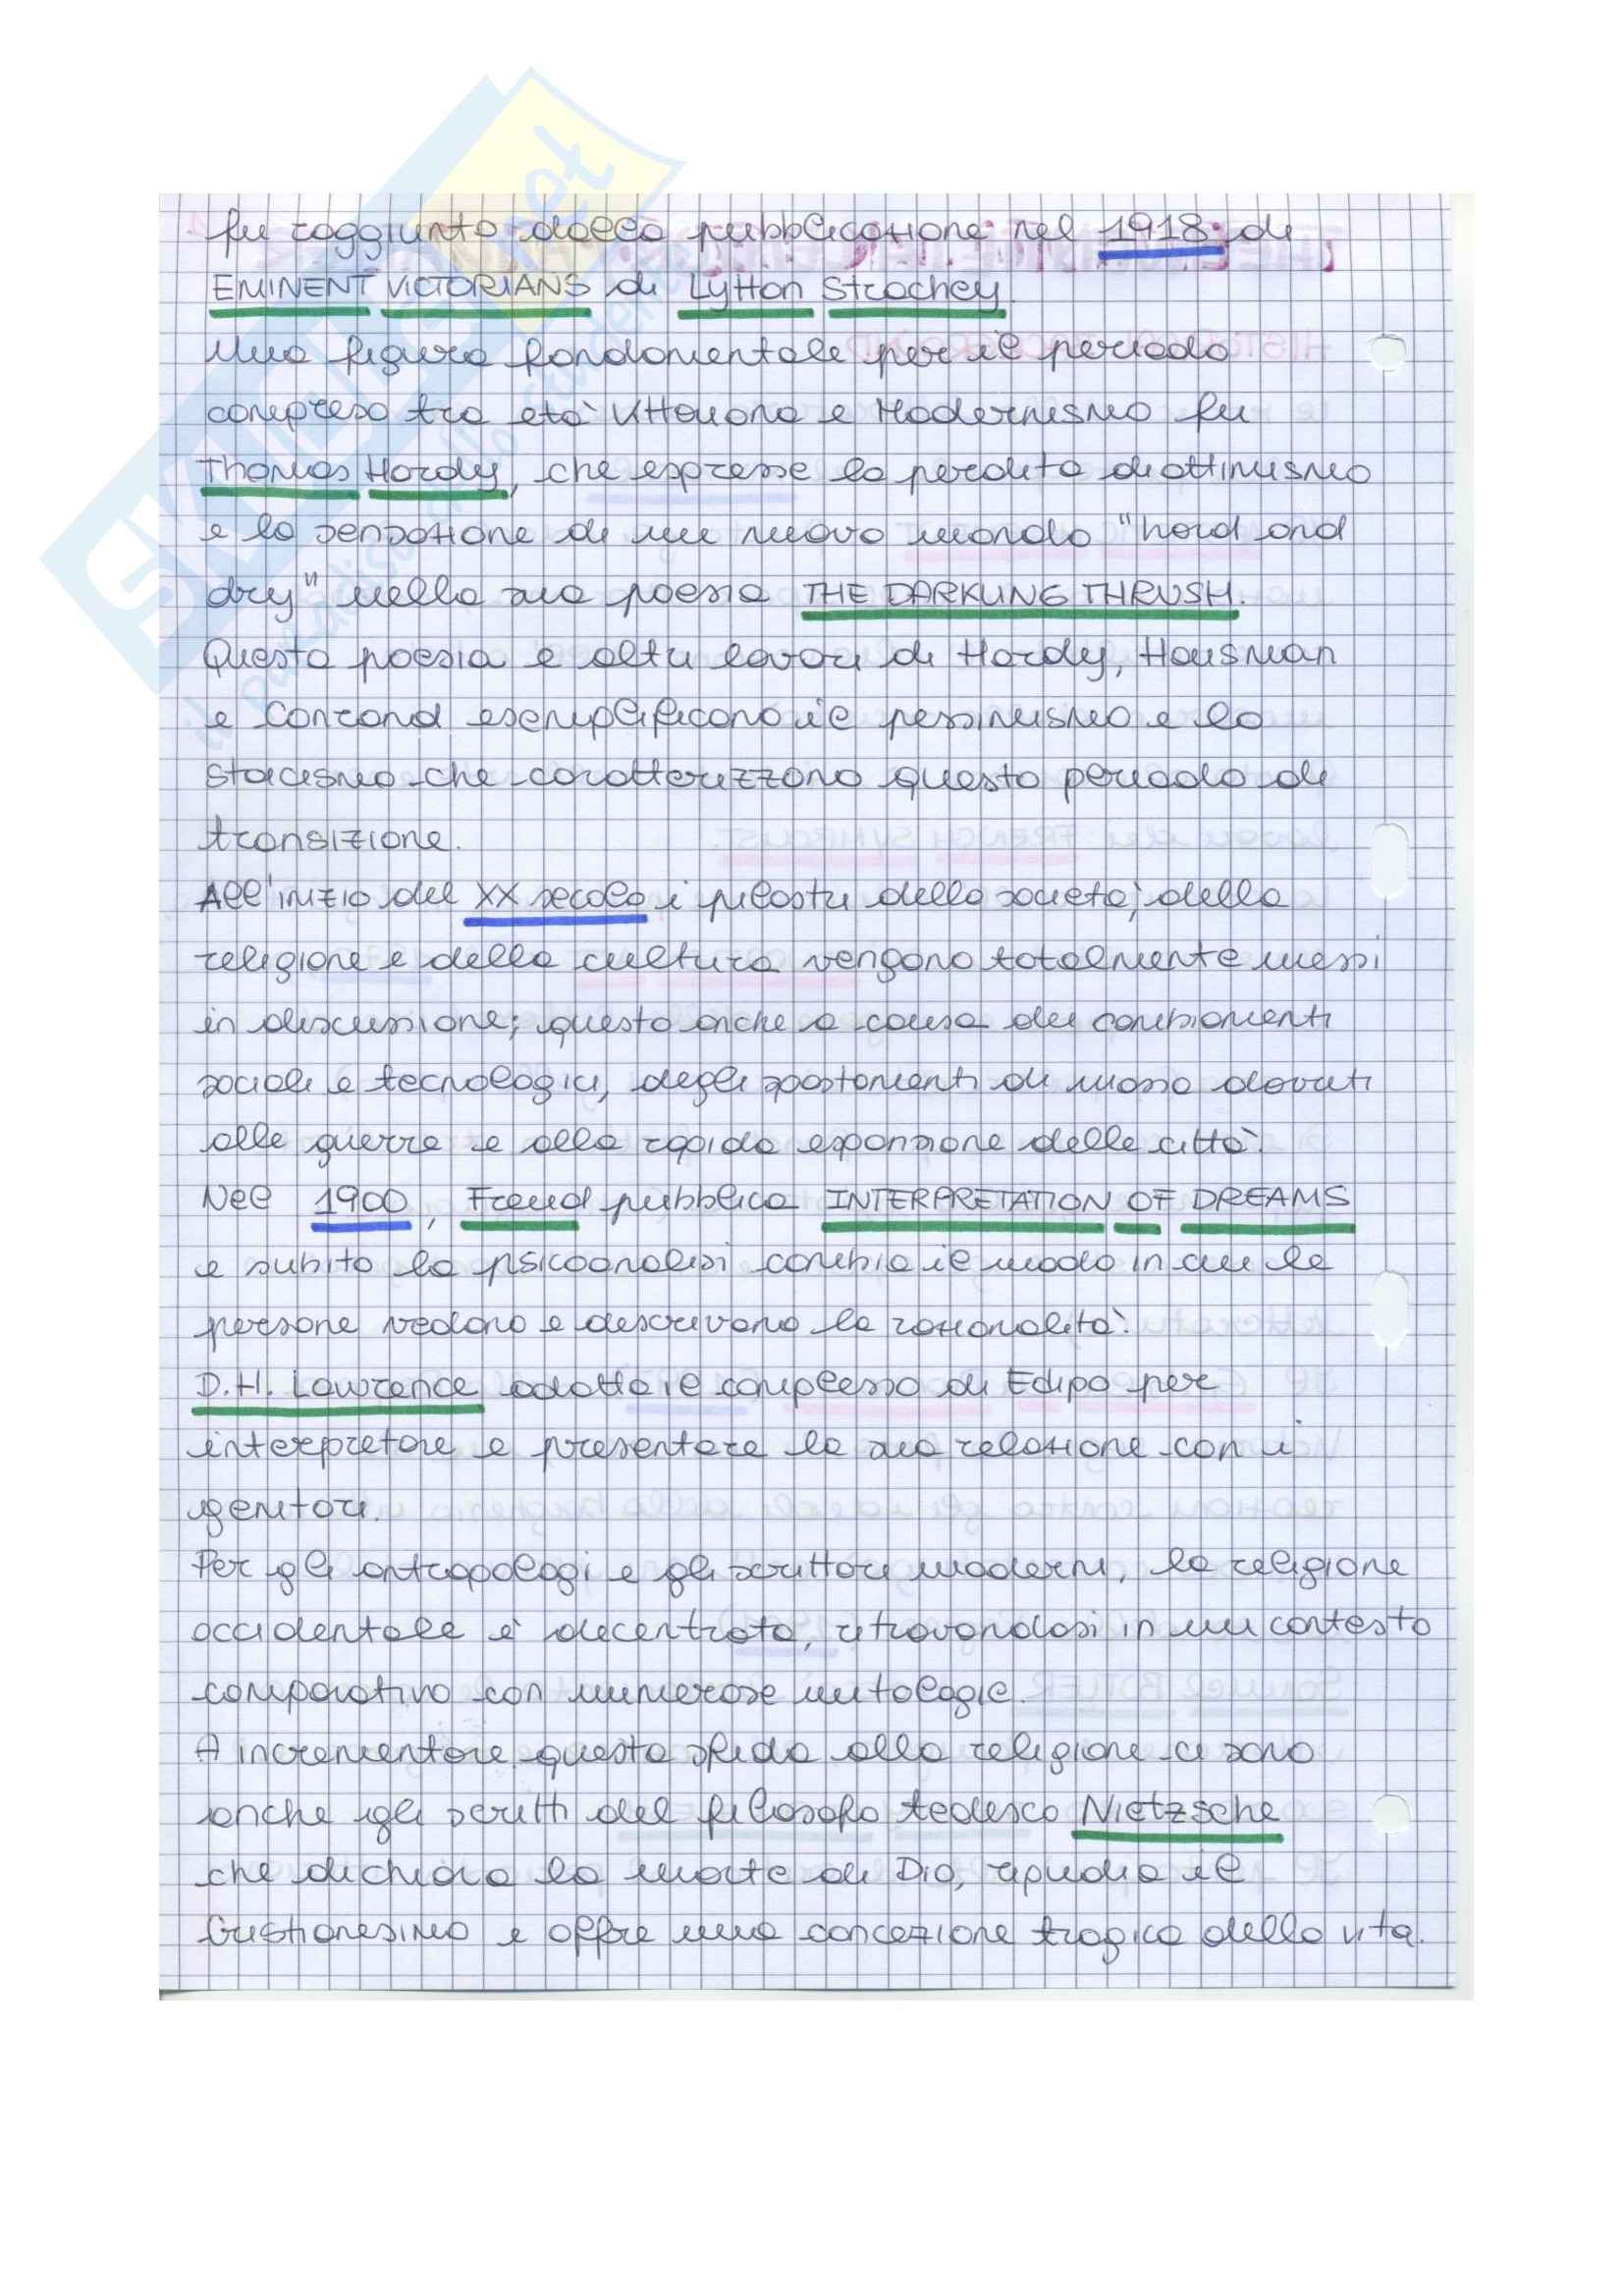 fu raggiunto dalla pubblicazione nel 1918 di
EMINENT VICTORIANS di Lytton Strachey.
Una figura fondamentale per il periodo
compreso tra età Vittoriana e Modernismo fu
Thomas Hardy, che espresse la perdita di ottimismo
e la sensazione di un nuovo mondo "hard and
dry" nella sua poesia THE DARKLING THRUSH.
Questa poesia e altri lavori di Hardy, Housman
e Conrand esemplificano il pessimismo e lo
stoicismo che caratterizzano questo periodo di
transizione.
All'inizio del XX secolo i pilastri della società, della
religione e della cultura vengono totalmente messi
in discussione; questo anche a causa dei cambiamenti
sociali e tecnologici, degli spostamenti di massa dovuti
alle guerre e alla rapida espansione delle città.
Nel 1900, Freud pubblica INTERPRETATION OF DREAMS
e subito la psicoanalisi cambia il modo in cui le
persone vedono e descrivono la razionalità.
D.H. Lawrence adotta il complesso di Edipo per
interpretare e presentare la sua relazione con i
genitori.
Per gli antropologi e gli scrittori moderni, la religione
occidentale è decentrata, ritrovandosi in un contesto
comparativo con numerose mitologie.
A incrementare questa sfida alla religione ci sono
anche gli scritti del filosofo tedesco Nietzsche
che dichiara la morte di Dio, ripudia il
Cristianesimo e offre una concezione tragica della vita.